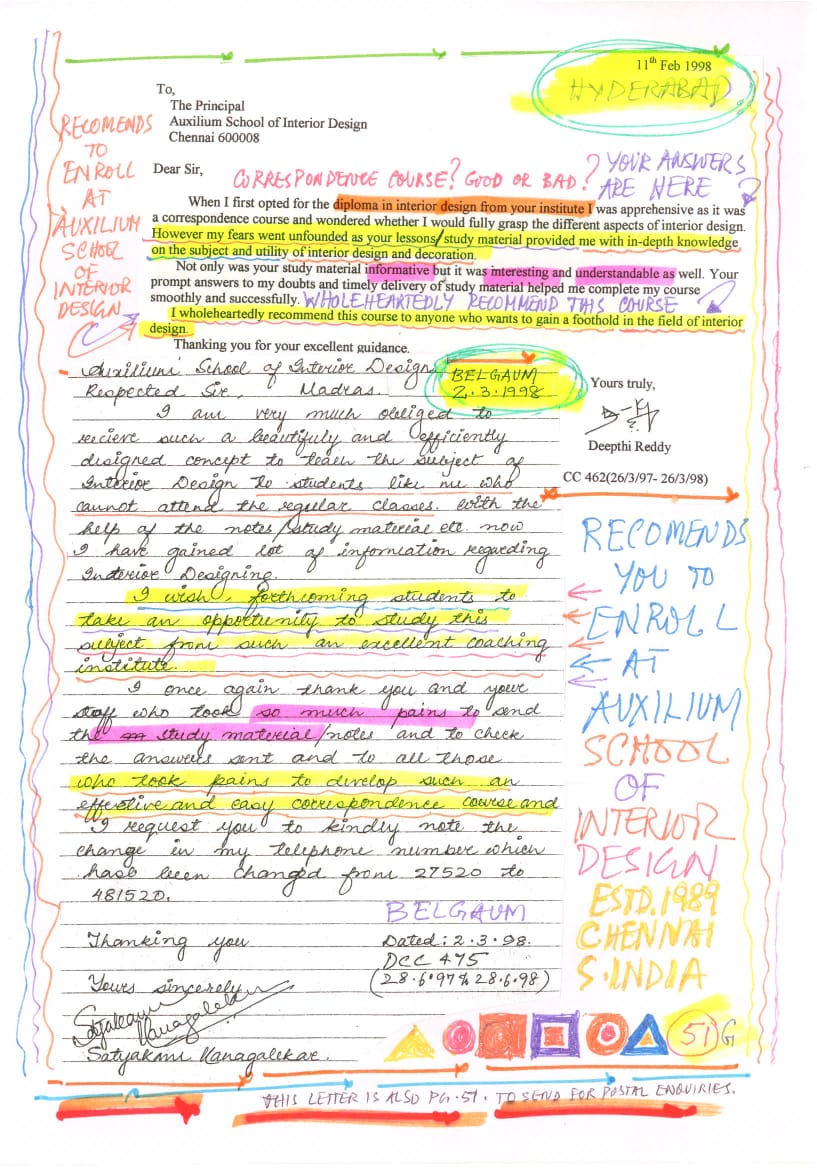 11th Feb 1998
HYDERABAD
To,
The Principal
Auxilium School of Interior Design
Chennai 600008
RECOMENDS
TO
ENROLL
AT
AUXILIUM
SCHOOL
OF
INTERIOR
DESIGN
Dear Sir,
CORRESPONDENCE COURSE? GOOD OR BAD?
YOUR ANSWERS
ARE HERE
When I first opted for the diploma in interior design from your institute I was apprehensive as it was
a correspondence course and wondered whether I would fully grasp the different aspects of interior design.
However my fears went unfounded as your lessons/study material provided me with in-depth knowledge
on the subject and utility of interior design and decoration.
Not only was your study material informative but it was interesting and understandable as well. Your
prompt answers to my doubts and timely delivery of study material helped me complete my course
smoothly and successfully. WHOLEHEARTEDLY RECOMMEND THIS COURSE
I wholeheartedly recommend this course to anyone who wants to gain a foothold in the field of interior
design.
Thanking you for your excellent guidance.
Yours truly,
Deepthi Reddy
CC 462(26/3/97- 26/3/98)
Auxilium School of Interior Design
BELGAUM
2.3.1998
Respected Sir, Madras.
I am very much obliged to
recieve such a beautifuly and efficiently
disigned concept to teach the subject of
Interior Design to students like me who
cannot attend the regular classes. With the
help of the notes/study material etc. now
I have gained lot of information regarding
Interior Designing.
I wish, forthcoming students to
take an opportunity to study this
subject from such an excellent coaching
institute.
I once again thank you and your
staff who took so much pains to send
the study material/notes and to check
the answers sent and to all those
who took pains to develop such an
effective and easy correspondence course and
I request you to kindly note the
change in my telephone number which
has been changed from 27520 to
481520.
BELGAUM
Thanking you
Dated: 2.3.98.
DCC 475
Yours sincerely
(28.6.97 & 28.6.98)
Satyakam Kanagalekar
Satyakam Kanagalekar.
RECOMENDS
YOU TO
ENROLL
AT
AUXILIUM
SCHOOL
OF
INTERIOR
DESIGN
ESTD.1989
CHENNAI
S.INDIA
51 G
THIS LETTER IS ALSO PG.51. TO SEND FOR POSTAL ENQUIRIES.